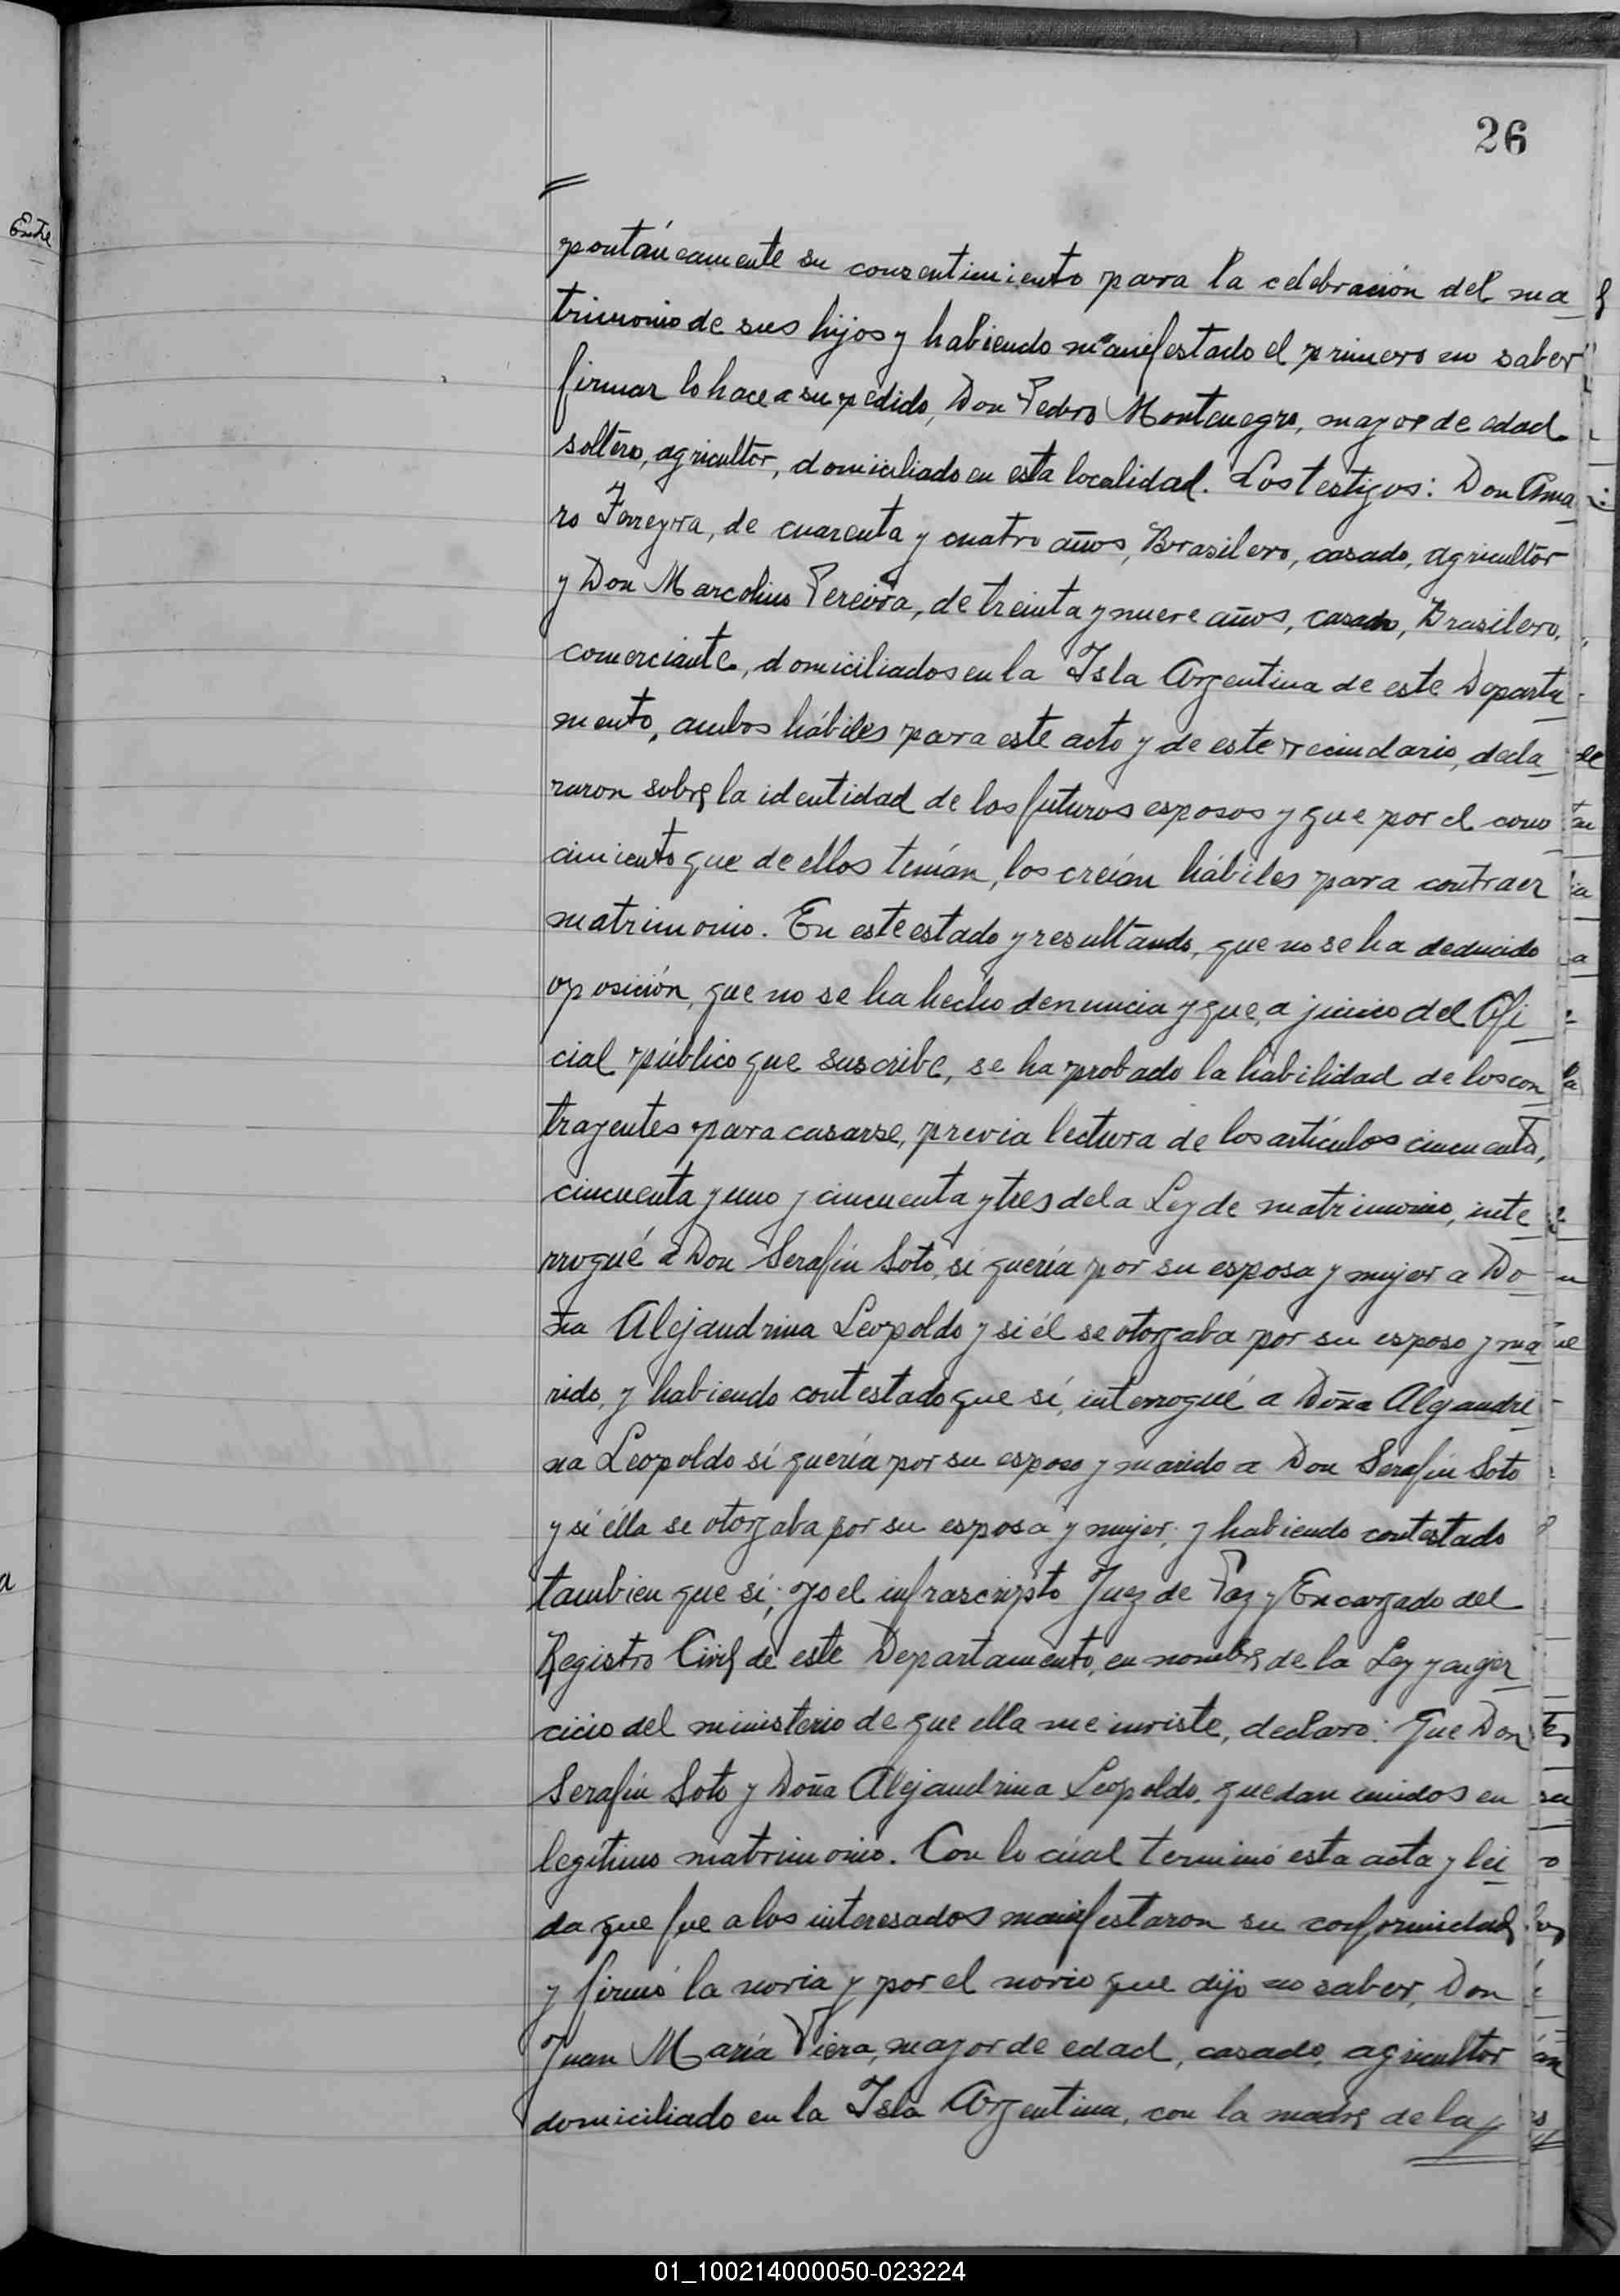 26
Ente
pontáneamente su consentimiento para la celebración del ma
trimonio de sus hijos y habiendo manifestado el primero no saber
firmar lo hace a su pedido, Don Pedro Montenegro, mayor de edad
soltero, agricultor, domiciliado en esta localidad. Los testigos: Don Ama
ro Ferreyra, de cuarenta y cuatro años, Brasilero, casado, agricultor
y Don Marcolino Pereira, de treinta y nueve años, casado, Brasilero,
comerciante, domiciliados en la Isla Argentina de este Departa
mento, ambos hábiles para este acto y de este vecindario, decla
raron sobre la identidad de los futuros esposos y que por el cono
cimiento que de ellos tenían, los creían hábiles para contraer
matrimonio. En este estado y resultando, que no se ha deducido
oposición, que no se ha hecho denuncia y que, a juicio del Ofi
cial público que suscribe, se ha probado la habilidad de los con
trayentes para casarse, previa lectura de los artículos cincuenta,
cincuenta y uno y cincuenta y tres de la Ley de matrimonio, inte
rrogué a Don Serafín Soto, si quería por su esposa y mujer a Do
ña Alejandrina Leopoldo y si él se otorgaba por su esposo y ma
rido, y habiendo contestado que sí, interrogué a Doña Alejandri
na Leopoldo si quería por su esposo y marido a Don Serafín Soto
y si élla se otorgaba por su esposa y mujer; y habiendo contestado
tambien que sí; yo el infrascripto Juez de Paz y Encargado del
Registro Civil de este Departamento, en nombre de la Ley y en ejer
cicio del ministerio de que ella me inviste, declaro: Que Don
Serafín Soto y Doña Alejandrina Leopoldo, quedan unidos en
legítimo matrimonio. Con lo cúal terminó esta acta y lei
da que fue a los interesados manifestaron su conformidad
y firmó la novia y por el novio que dijo no saber, Don
Juan María Viera, mayor de edad, casado, agricultor
domiciliado en la Isla Argentina, con la madre de la
01_100214000050-023224